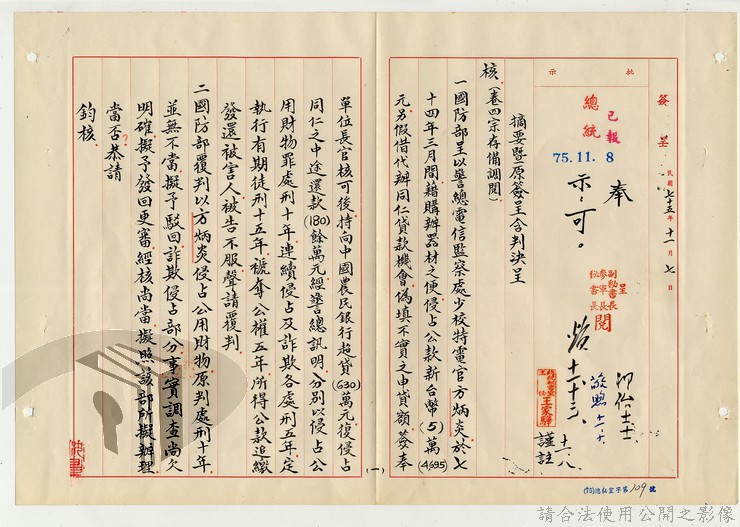 批示
簽呈
民國七十五年十一月七日
總統
已報
75.11.8
奉
示：可。
呈
副秘書長
參軍長
秘書長
閱
王家驊
謹註
十一.八
摘要暨原簽呈令判決呈
核。(卷四宗存備調閱)
一國防部呈以警總電信監察處少校持電官方炳炎於七
十四年三月間藉購辦器材之便侵占公款新台幣(5)萬(4695)
元另假借代辦同仁貸款機會偽填不實之申貸額簽奉
單位長官核可後持向中國農民銀行超貸(630)萬元復侵占
同仁之中途還款(180)餘萬元經警總訊明分別以侵占公
用財物罪處刑十年連續侵占及詐欺各處刑五年定
執行有期徒刑十五年褫奪公權五年所得公款追繳
發還被害人被告不服聲請覆判
二國防部覆判以方炳炎侵占公用財物原判處刑十年
並無不當擬予駁回詐欺侵占部分事實調查尚欠
明確擬予發回更審經核尚當擬照該部所擬辦理
當否恭請
鈞核
(一)
(75)總秘室字第109號
請合法使用公開之影像